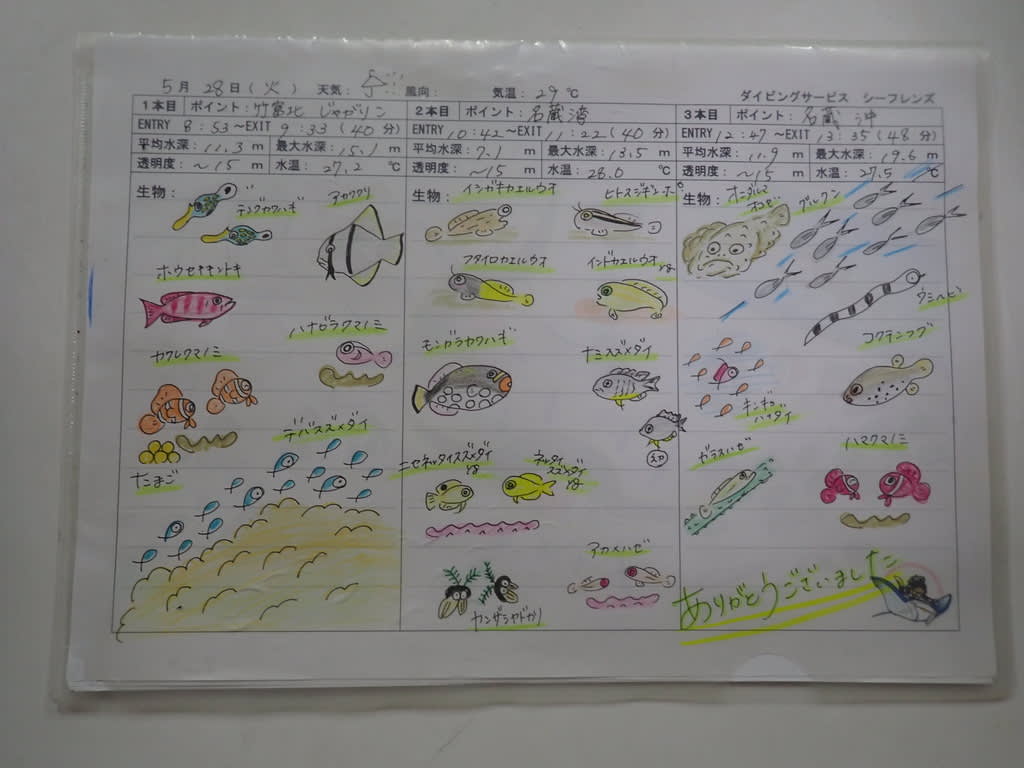 5月 28日(火) 天気: 風向: 気温: 29℃
ダイビングサービス シーフレンズ
1本目 ポイント: 竹富北 じゃがリン
ENTRY 8:53~EXIT 9:33(40分)
平均水深: 11.3 m 最大水深: 15.1 m
透明度: ~15 m 水温: 27.2 ℃
生物:
テングカワハギ
アカククリ
ホウセキキントキ
ハナビラクマノミ
カクレクマノミ
デバスズメダイ
たまご
2本目 ポイント: 名蔵湾
ENTRY 10:42~EXIT 11:22(40分)
平均水深: 7.1 m 最大水深: 13.5 m
透明度: ~15 m 水温: 28.0 ℃
生物:
イシガキカエルウオ
ヒトスジギンポ
フタイロカエルウオ
インドカエルウオ yg
モンガラカワハギ
ナミスズメダイ
幼
ニセネッタイスズメダイ yg
ネッタイスズメダイ yg
アカメハゼ
カンザシヤドカリ
3本目 ポイント: 名蔵沖
ENTRY 12:47~EXIT 13:35(48分)
平均水深: 11.9 m 最大水深: 19.6 m
透明度: ~15 m 水温: 27.5 ℃
生物:
オニダルマオコゼ
グルクン
ウミヘビ
コクテンフグ
キンギョハナダイ
ガラスハゼ
ハマクマノミ
ありがとうございました